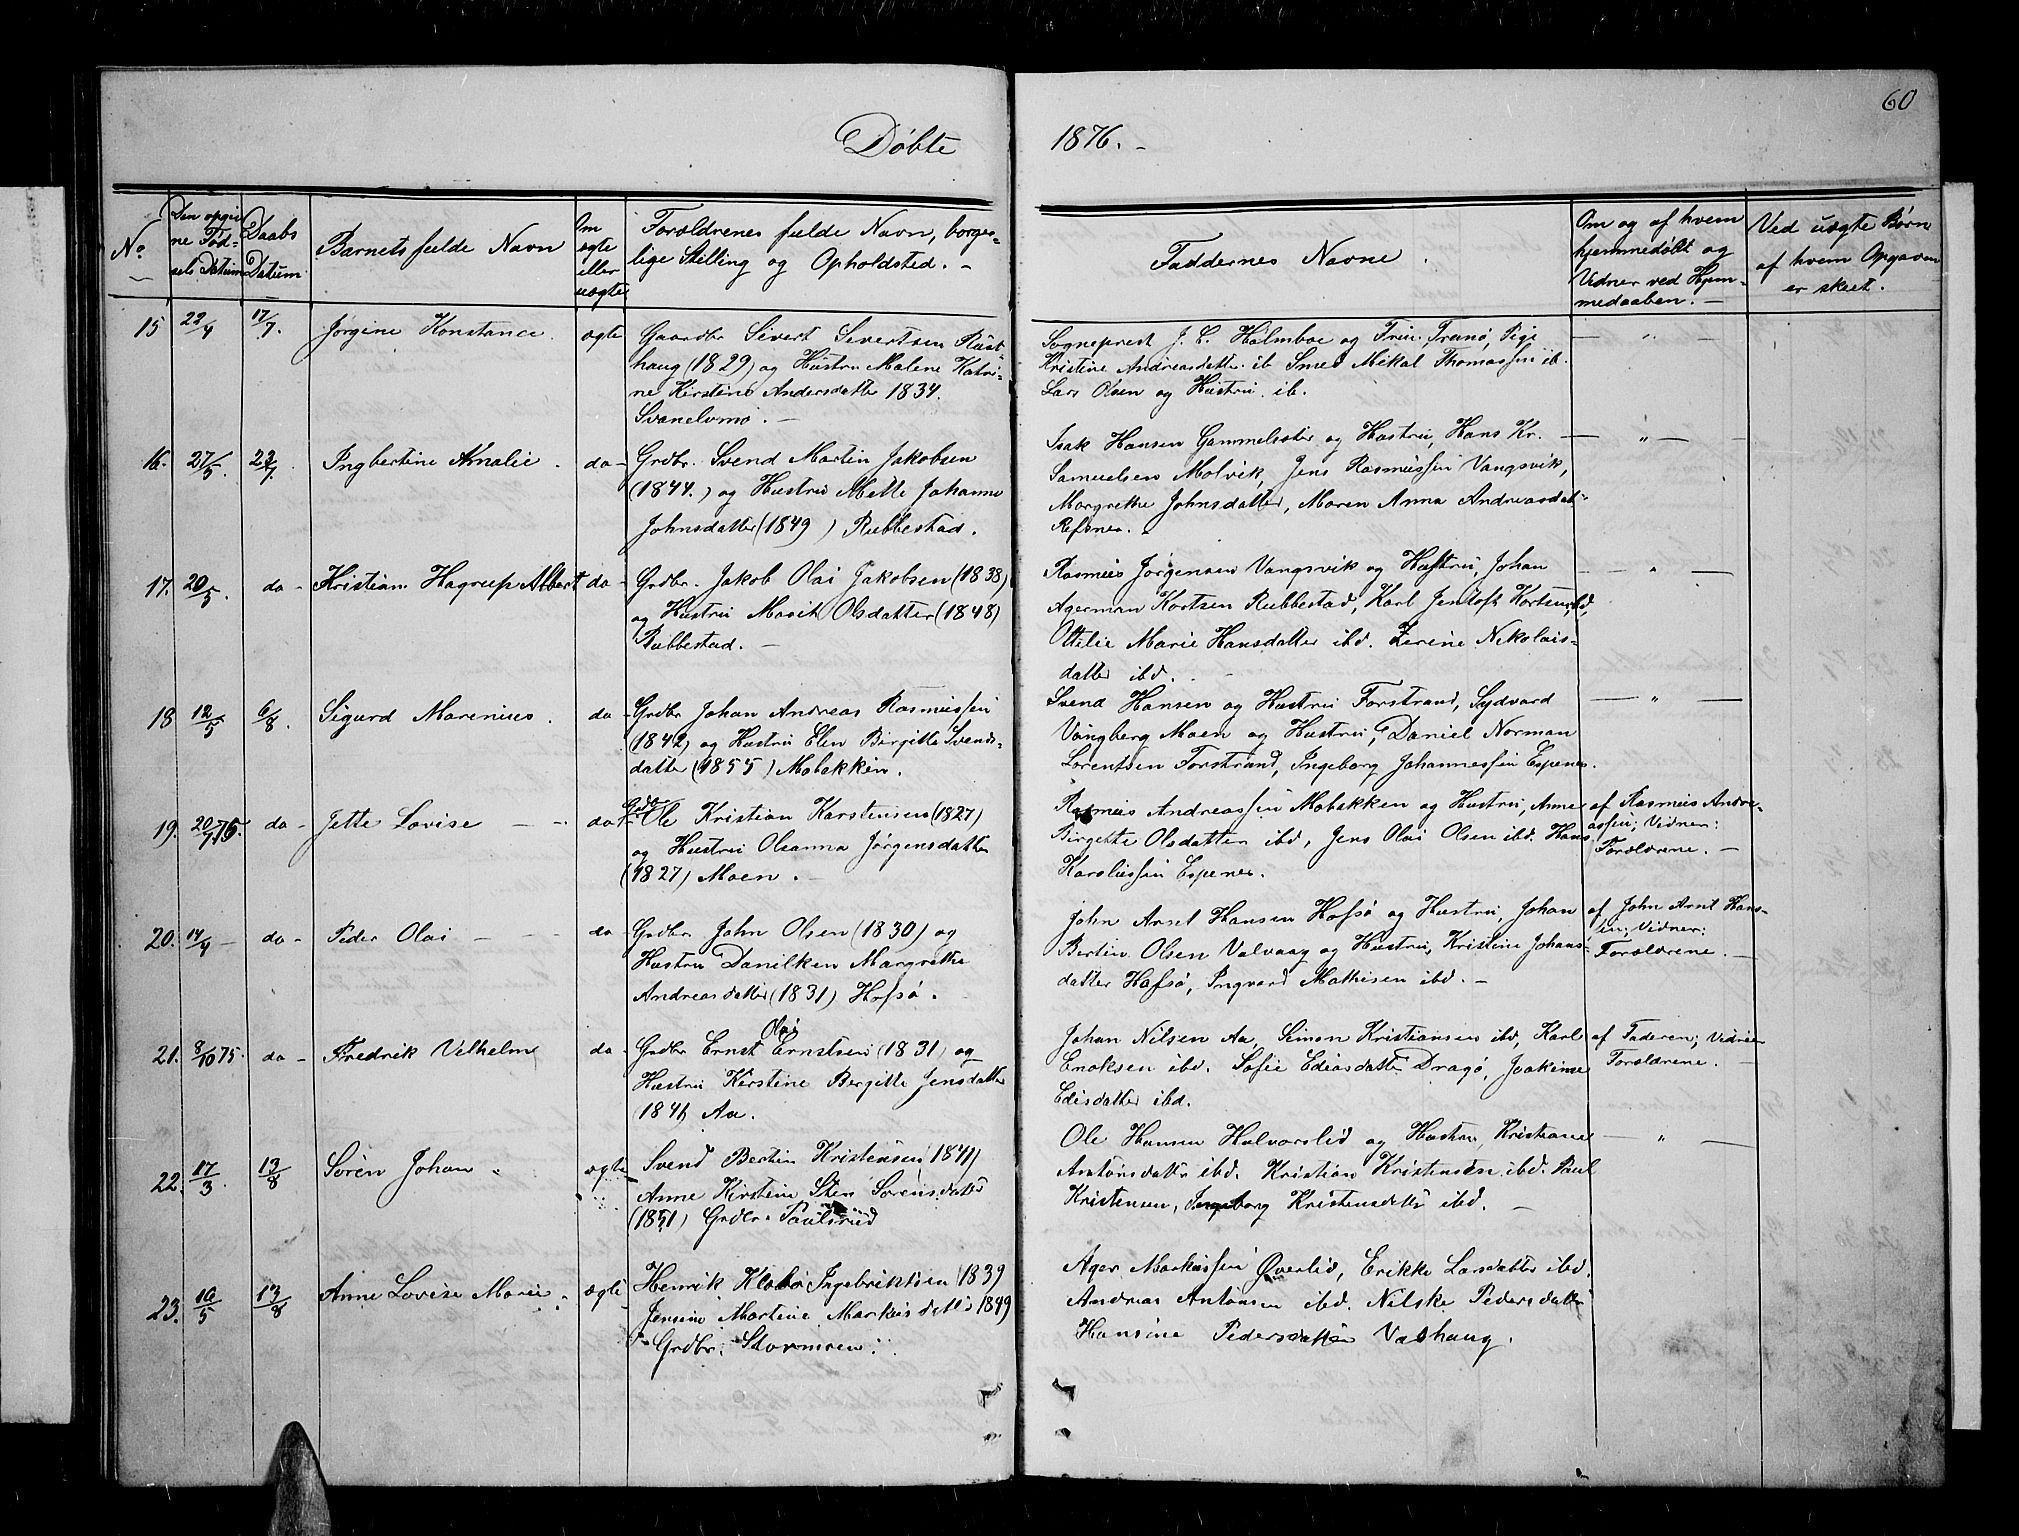 60
Döbte
1876. -
No
Den opgiv
ne Föd-
sels Datum
Daabs
Datum
Barnets fulde Navn
Om
ægte
eller
uægte
Forældrenes fulde Navn, borger-
lige Stilling og Opholdsted. -
Faddernes Navne.
Om og af hvem
hjemmedöbt og
Vidner ved Hjem-
medaaben. -
Ved uægte Börn
af hvem Opgaven
er skeet.
15 22/4 17/7. Jørgine Konstance. ægte
Gaardbr Sivert Sivertsen Rust-
haug (1829) og Hustru Malene Katri-
ne Kirstine Andersdatter 1834.
Svanelvmo. -
Sogneprest J. C. Holmboe og Frue, Tranø, Pige
Kristine Andreasdatter ib Smed Mikal Thomassen ib.
Lars Olsen og Hustru ib.
— " —
16. 27/5 23/7. Ingbertine Amalie. do -
Grdbr. Svend Martin Jakobsen
(1844.) og Hustru Mette Johanne
Johnsdatter (1849) Rubbestad.
Isak Hansen Gammelsæter og Hustru, Hans Kr.
Samuelsen Molvik, Jens Rasmussen Vangsvik,
Margrethe Johnsdatter, Maren Anna Andreasdat
Refsnes.
— " —
17. 20/5. do - Kristian Hagrup Albert do -
Grdbr. Jakob Olai Jakobsen (1838)
og Hustru Marit Olsdatter (1848)
Rubbestad. -
Rasmus Jørgensen Vangsvik og Hustru, Johan
Agerman Kortsen Rubbestad, Karl Jentoft Kortsen ibd,
Ottilie Marie Hansdatter ibd. Zerine Nikolais-
datter ibd.
— " —
18 12/5 6/8. Sigurd Marenius. do -
Grdbr Johan Andreas Rasmussen
(1842) og Hustru Elen Birgitte Svends-
datter (1855) Mobakken.
Svend Hansen og Hustru Forstrand, Sydvard
Vangberg Moen og Hustru, Daniel Norman
Lorentsen Forstrand, Ingeborg Johannessen Espenes.
— " —
19. 20/7 75. do - Jette Lovise - - do -
Grdbr Ole Kristian Karstensen (1827)
og Hustru Olsanna Jørgensdatter
(1827) Moen. -
Rasmus Andreassen Mobakken og Hustru, Anne
Birgitte Olsdatter ibd, Jens Olai Olsen ibd. Hans
Karoliussen Espenes.
af Rasmus Andre-
assen; Vidner:
Forældrene. -
20. 14/4 - do - Peder Olai - - do -
Grdbr John Olsen (1830) og
Hustru Danilken Margrethe
Andreasdatter (1831) Hofsø.
John Arnt Hansen Hofsø og Hustru, Johan
Bertin Olsen Valvaag og Hustru, Kristine Johans-
datter Hofsø, Ingvard Mathisen ibd. -
af John Arnt Han-
sen; Vidner:
Forældrene. -
21. 8/10 75. do - Fredrik Vilhelm do -
Olai
Grdbr Ernst Ernstsen (1831) og
Hustru Kirstine Bergitte Jensdatter
1846 Aa.
Johan Nilsen Aa, Simon Kristiansen ibd, Karl
Enoksen ibd. Sofie Ediasdatter Dragø, Joakime
Edisdatter ibd.
af Faderen; Vidner
Forældrene. -
22. 17/3. 13/8 Sören Johan. ægte
Svend Bertin Kristensen 1841)
Anne Kirstine Sten Sörensdatter
(1851) Grdbr. Paulsrud
Ole Hansen Halvorslid og Hustru, Kristiane
Antonsdatter ibd. Kristian Kristensen ibd. Paul
Kristensen, Ingeborg Kristensdatter ibd. -
— " —
23. 19/5 13/8 Anne Lovise Marie. ægte
Henrik Klæbo Ingebriktsen (1839
Jensine Martine Markusdatter 1849
Grdbr. Stormoen.
Ager Markussen Øverlid, Erikke Larsdatter ibd.
Andreas Antonsen ibd. Nilske Pedersdatter
Hansine Pedersdatter Vashaug.